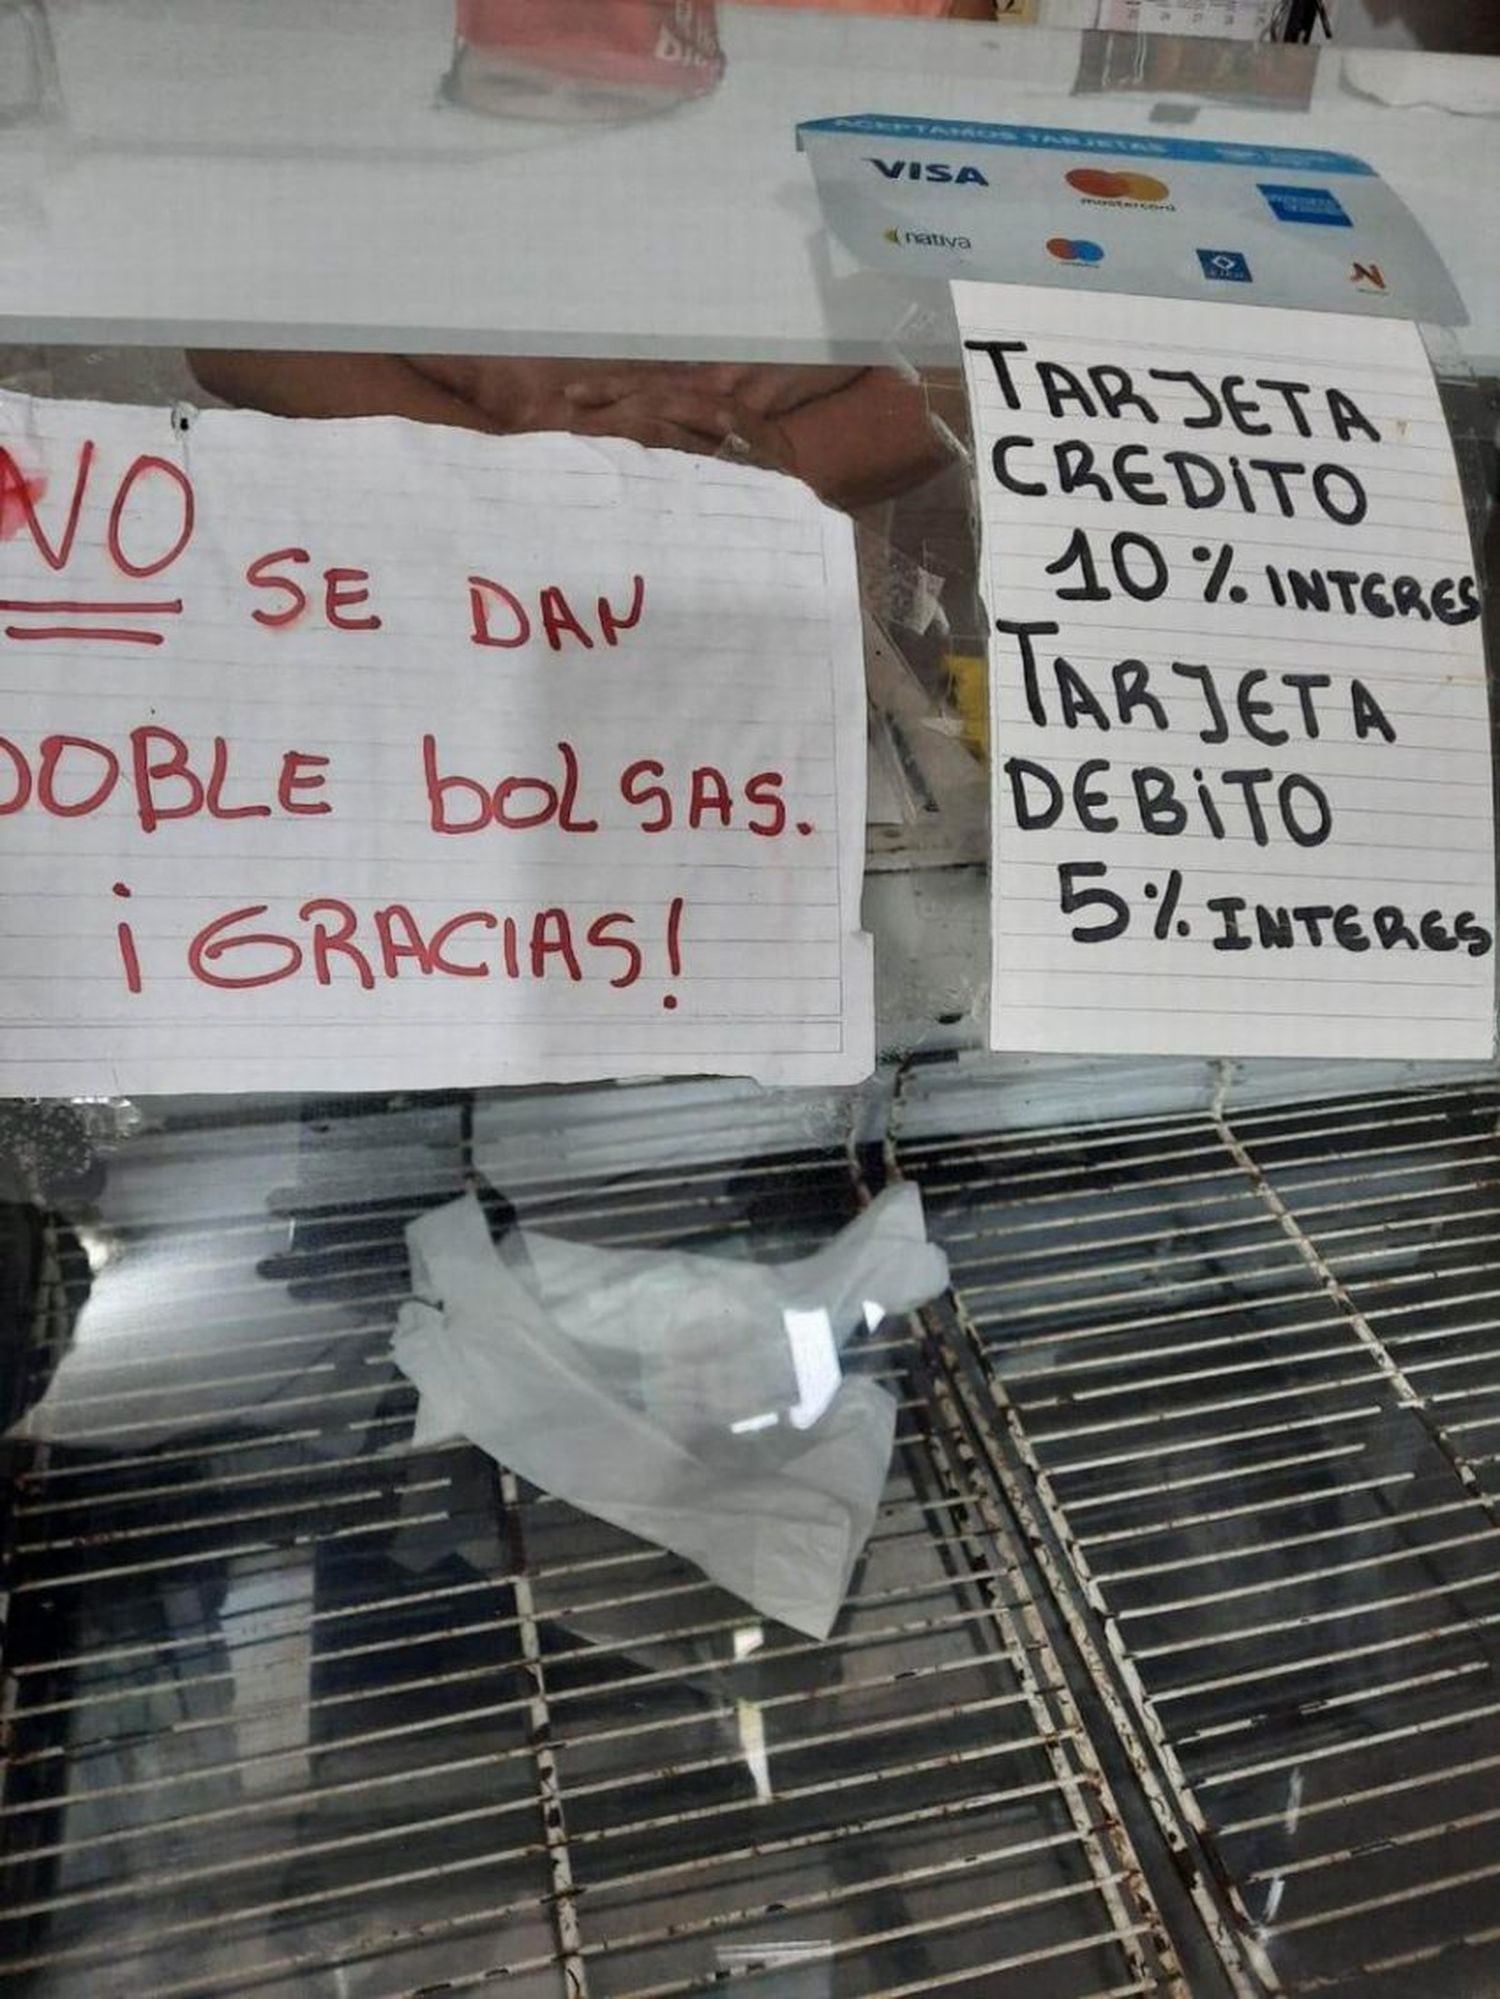 ACEPTAMOS TARJETAS
VISA
mastercard
AMERICAN EXPRESS
nativa
NO SE DAN
DOBLE bOLSAS.
¡GRACIAS!
TARJETA
CREDiTO
10% INTERES
TARJETA
DEBiTO
5% INTERES